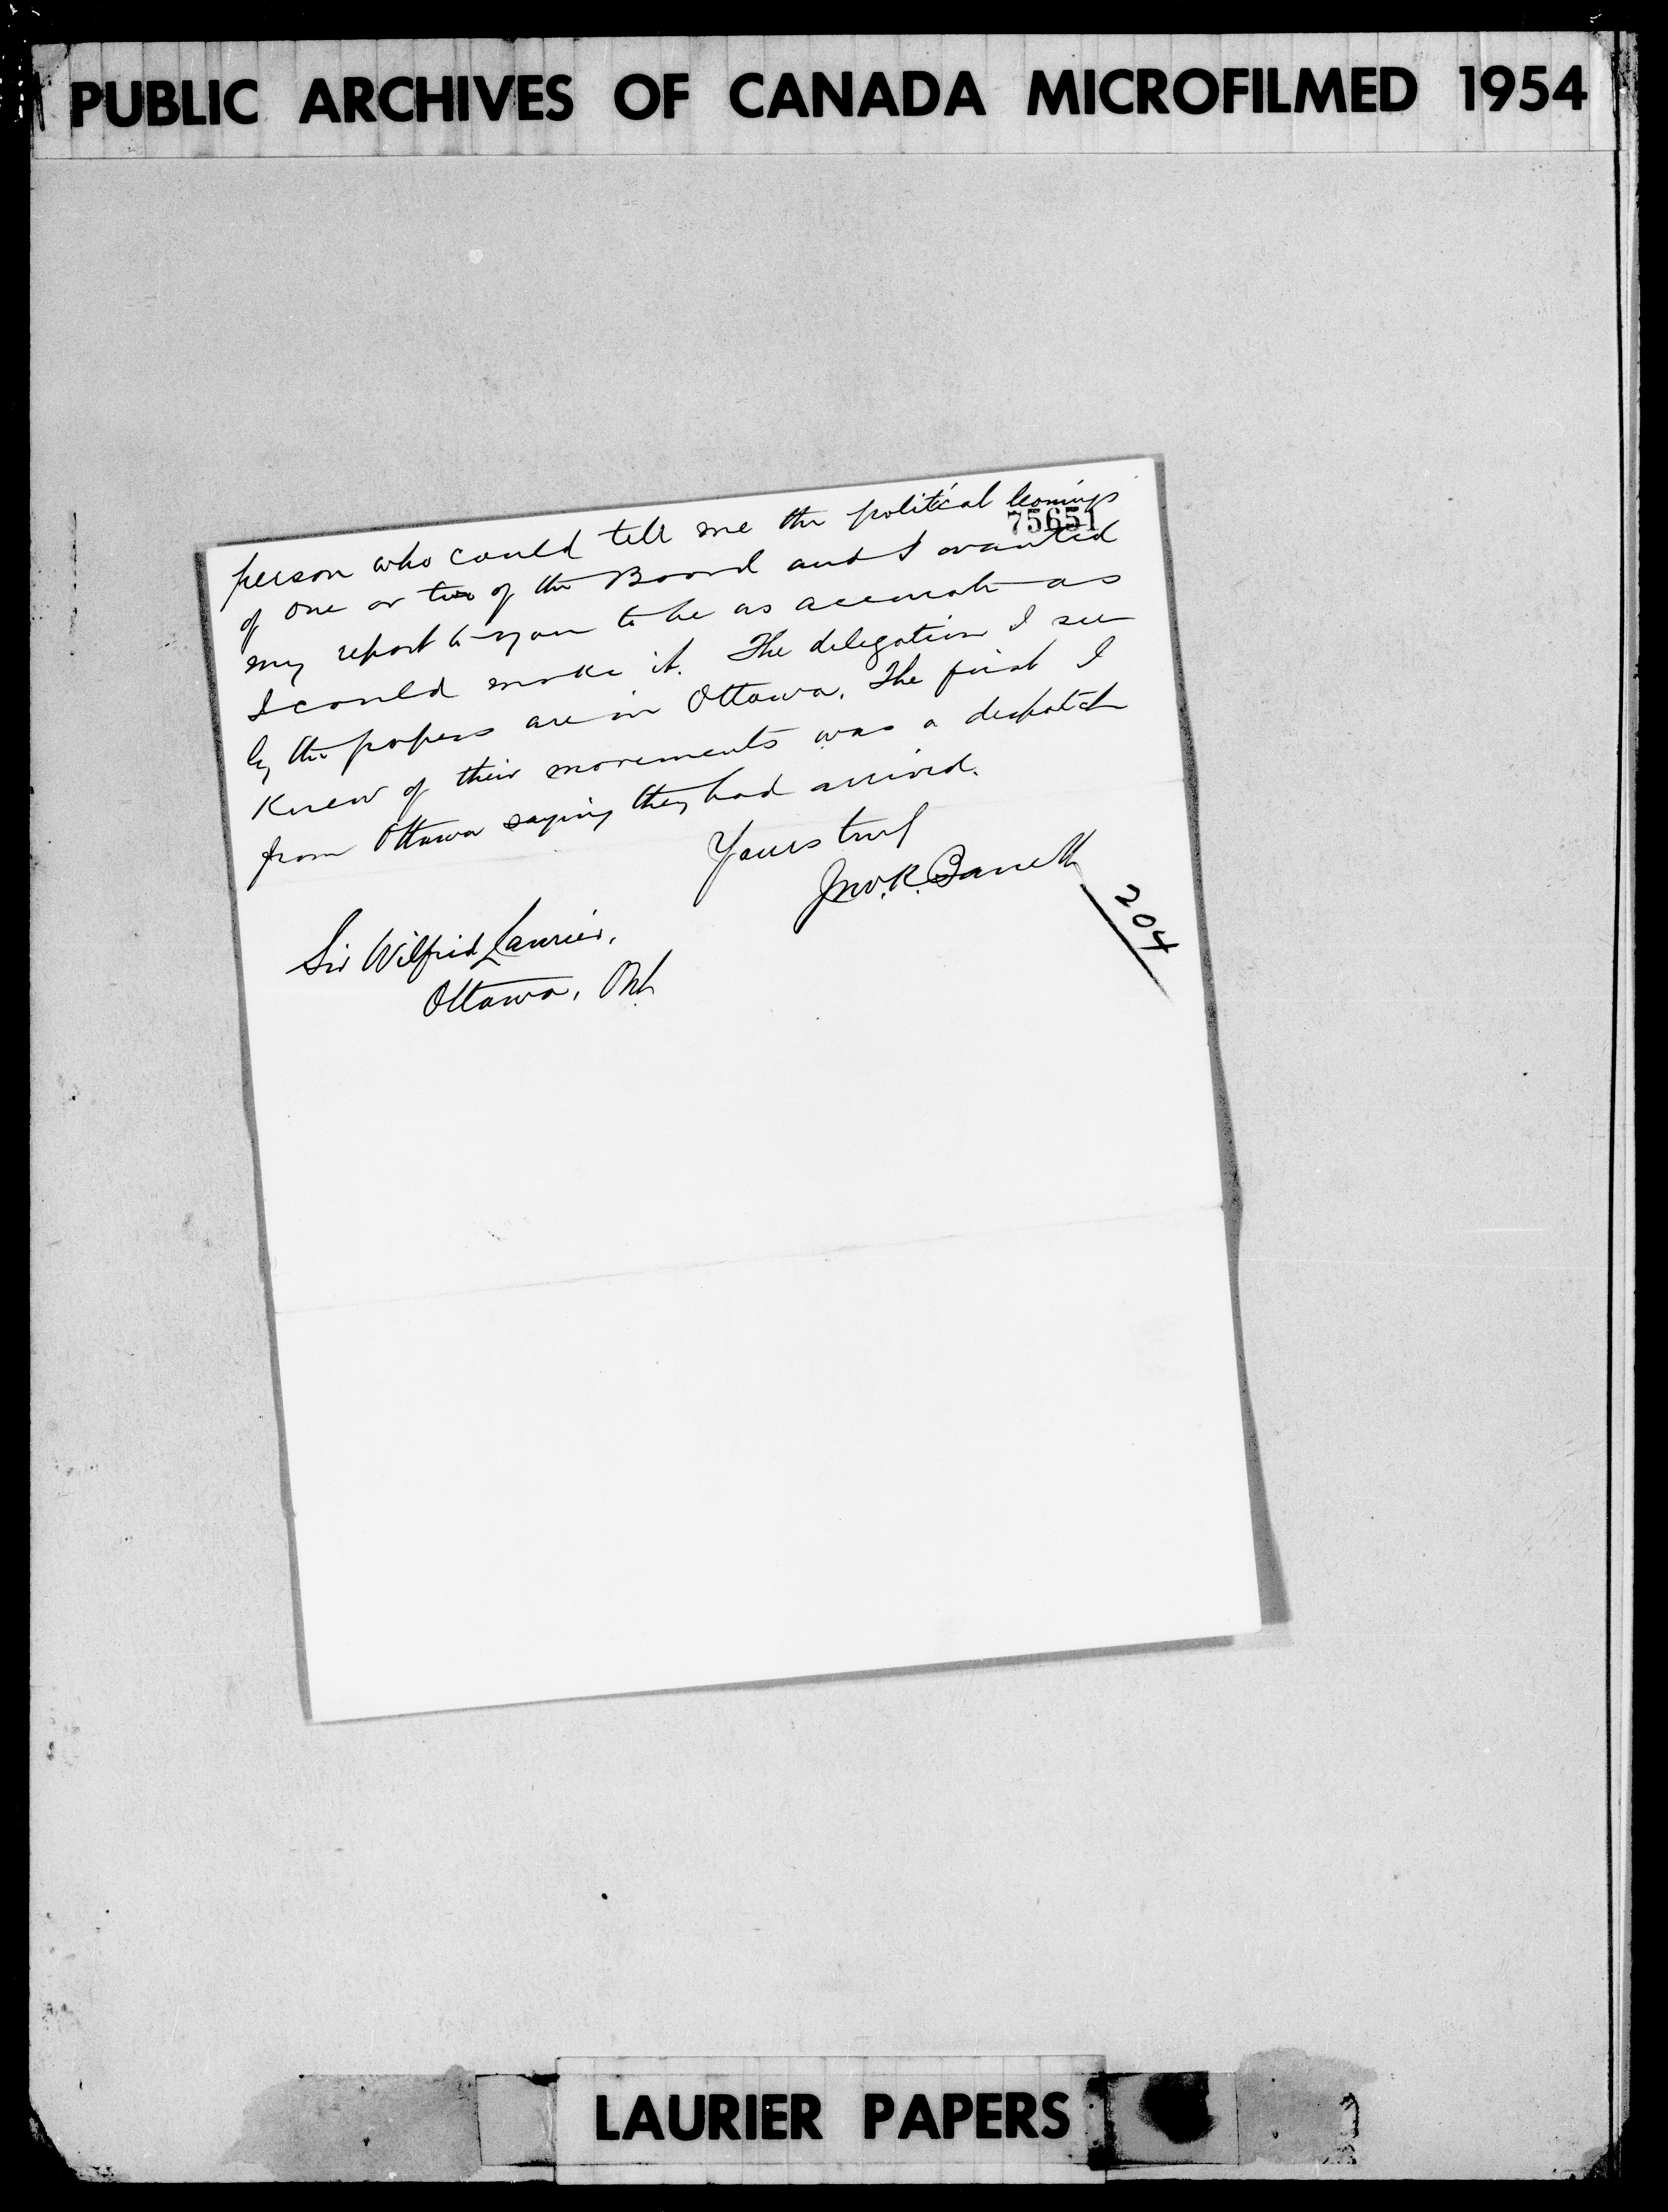 PUBLIC ARCHIVES OF CANADA MICROFILMED 1954
75651
person who could tell me the political leanings
of one or two of the Board and I wanted
my report to you to be as accurate as
I could make it. The delegation I see
by the papers are in Ottawa. The first I
knew of their movements was a despatch
from Ottawa saying they had arrived.
Yours truly
Jno. K. Barrett
204
Sir Wilfrid Laurier,
Ottawa, Ont.
LAURIER PAPERS